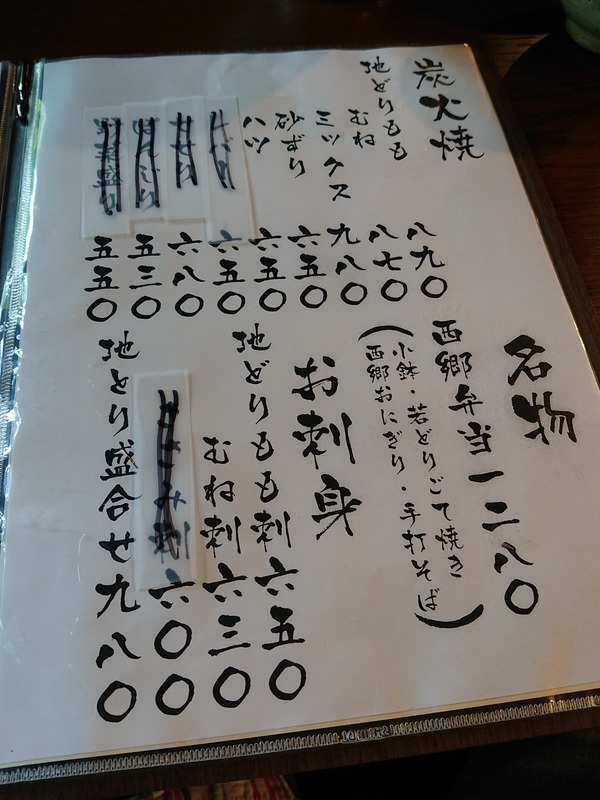 炭火焼
地どりもも 八九〇
むね 八七〇
ミックス 九八〇
砂ずり 六五〇
ハツ 六五〇
六五〇
六八〇
五三〇
五五〇
名物
西郷弁当 一二八〇
(小鉢・若どりごて焼き
西郷おにぎり・手打そば)
お刺身
地どりもも刺 六五〇
むね刺 六三〇
ささみ刺 六〇〇
地とり盛合せ 九八〇